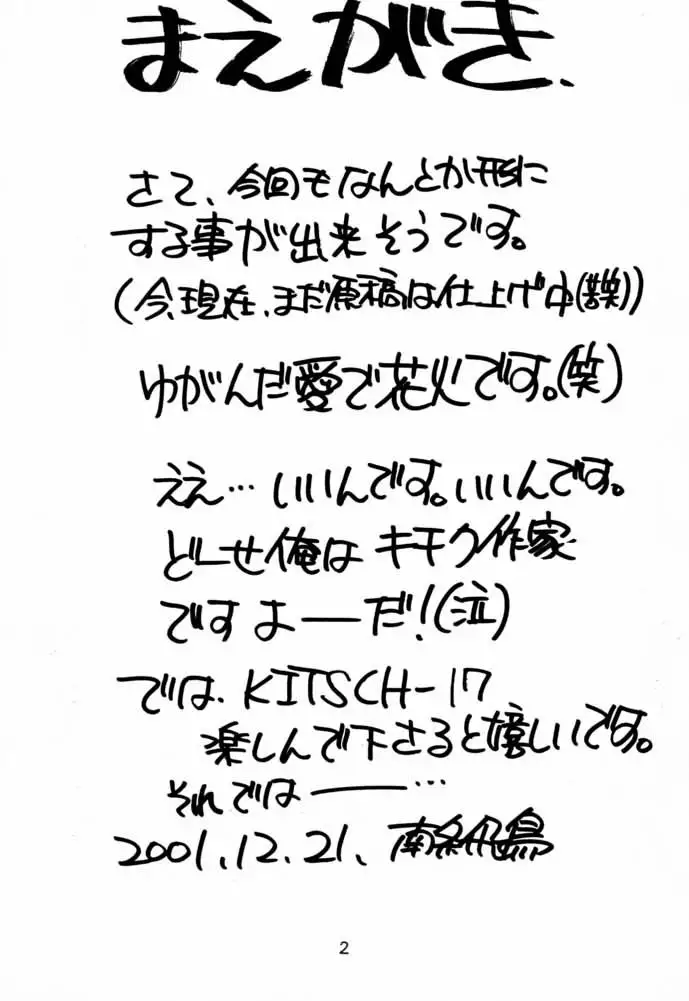 まえがき、
さて、今回もなんとか形に
する事が出来そうです。
(今、現在、まだ原稿は仕上げ中(苦笑))
ゆがんだ愛で花火です。(笑)
ええ…いいんです。いいんです。
どーせ俺はキモク作家
ですよーーだ!(泣)
では、KITSCH-17
楽しんで下さると嬉しいです。
それでは――…
2001.12.21、南条飛鳥
2